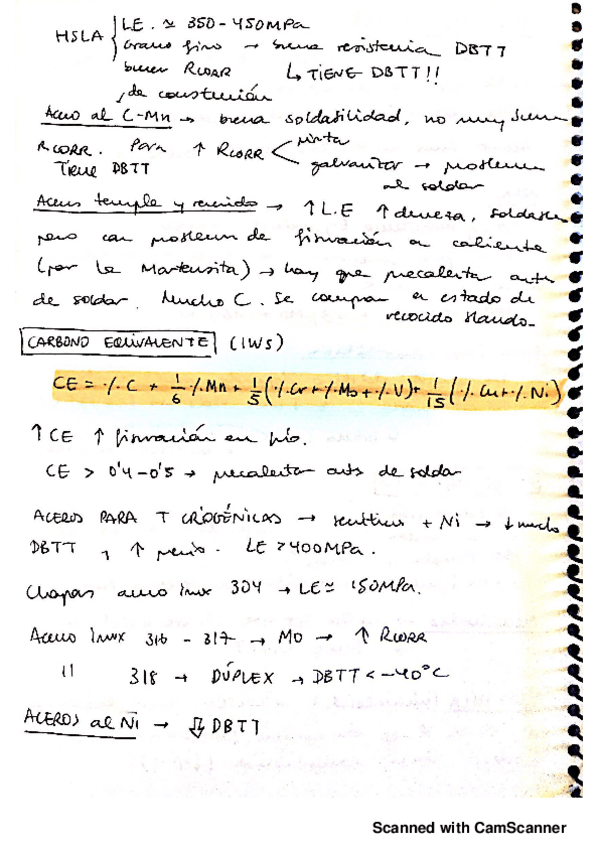 HSLA { LE. ≃ 350-450MPa
Grano fino → buena resistencia DBTT
buen RCORR ↳ TIENE DBTT!!
de construcción
Acero al C-Mn → buena soldabilidad, no muy buen
RCORR. Para ↑ RCORR < pintar
Tiene DBTT galvanizar → problema
al soldar
Aceros temple y revenido → ↑ L.E ↑ dureza, soldable
pero con problem de fisuración en caliente
(por la Martensita) → hay que precalentar antes
de soldar. Mucho C. Se compran en estado de
recocido blando.
CARBONO EQUIVALENTE (IWS)
CE = %C + 1/6 %Mn + 1/5 (%Cr + %Mo + %V) + 1/15 (%Cu + %Ni)
↑ CE ↑ fisuración en frío.
CE > 0'4-0'5 → precalentar antes de soldar
ACEROS PARA T CRIOGÉNICAS → + Ni → ↓ mucho
DBTT y ↑ precio. LE > 400MPa.
Chapas acero inox 304 → LE ≃ 150MPa.
Acero Inox 316 - 317 → Mo → ↑ RCORR
11 318 → DÚPLEX → DBTT < -40°C
ACEROS al Ni → ⇩ DBTT
Scanned with CamScanner